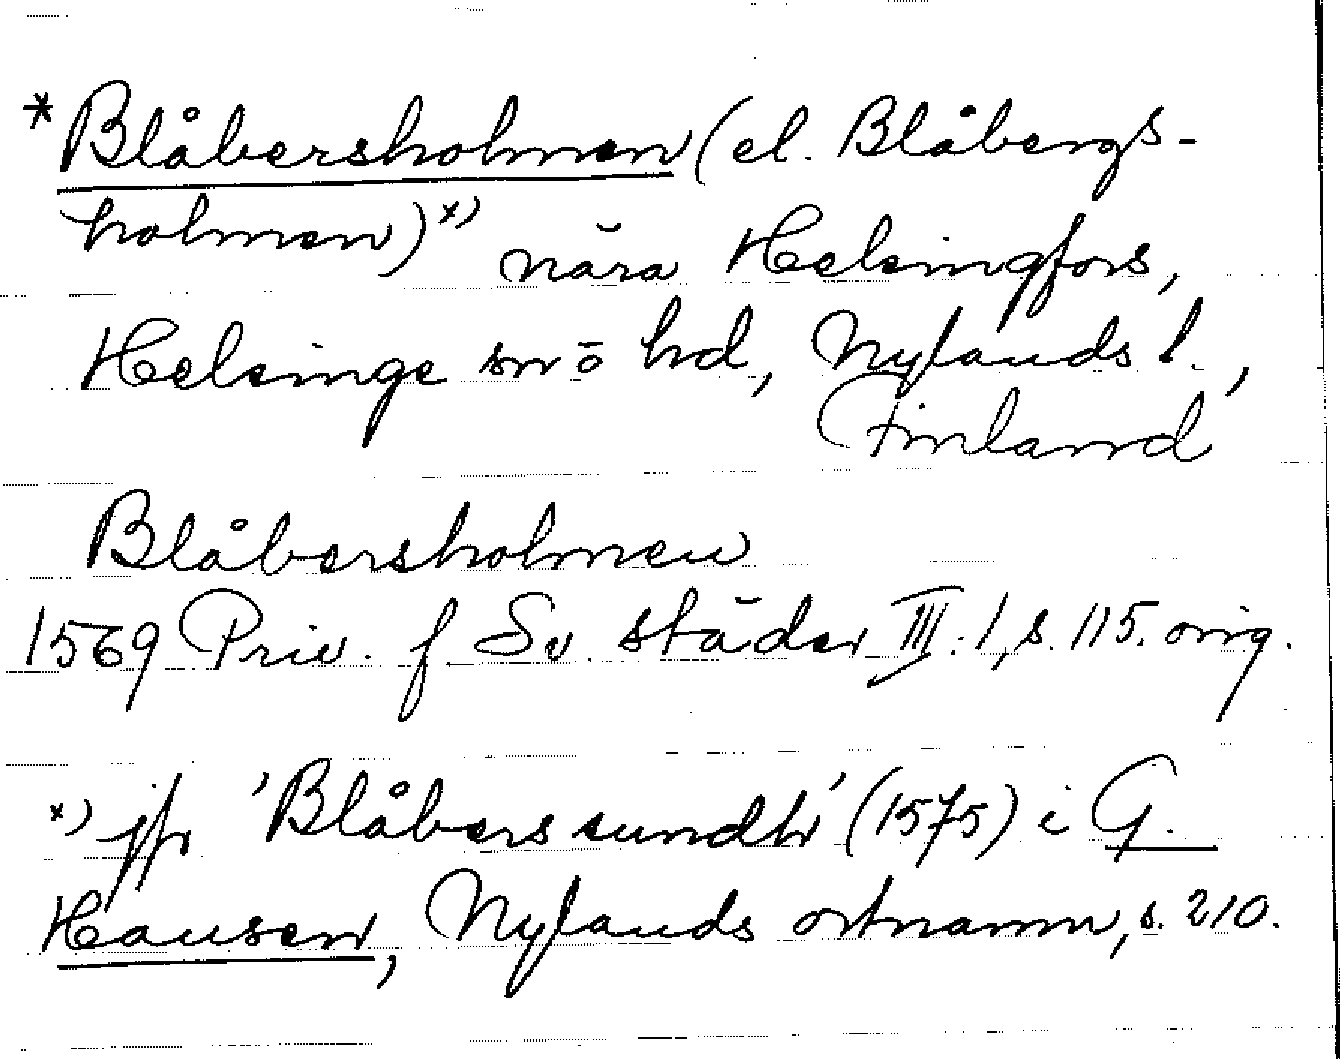 *Blåbersholmen (el. Blåbergs-
holmen)x) nära Helsingfors,
Helsinge sn o hd, Nylands l.,
Finland
Blåbersholmen
1569 Priv. f Sv. städer III:1, s. 115. orig.
x) jfr 'Blåbers sundh' (1575) i G.
Hausen, Nylands ortnamn, s. 210.